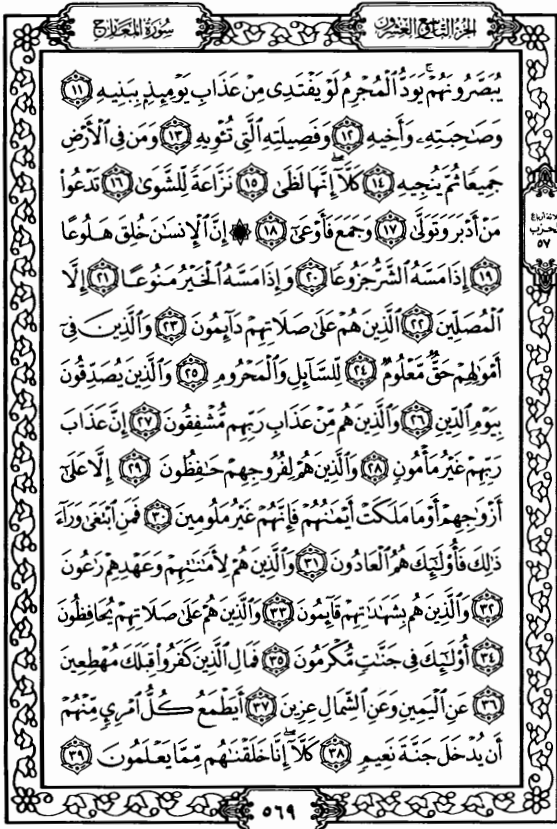 الجزء التاسع والعشرون
سورة المعارج
يُبَصَّرُونَهُمْ ۚ يَوَدُّ ٱلْمُجْرِمُ لَوْ يَفْتَدِى مِنْ عَذَابِ يَوْمِئِذٍۭ بِبَنِيهِ ١١
وَصَٰحِبَتِهِۦ وَأَخِيهِ ١٢ وَفَصِيلَتِهِ ٱلَّتِى تُـْٔوِيهِ ١٣ وَمَن فِى ٱلْأَرْضِ
جَمِيعًا ثُمَّ يُنجِيهِ ١٤ كَلَّآ ۖ إِنَّهَا لَظَىٰ ١٥ نَزَّاعَةً لِّلشَّوَىٰ ١٦ تَدْعُوا۟
مَنْ أَدْبَرَ وَتَوَلَّىٰ ١٧ وَجَمَعَ فَأَوْعَىٰٓ ١٨ ۞ إِنَّ ٱلْإِنسَٰنَ خُلِقَ هَلُوعًا
ثلاثة أرباع
الحزب
٥٧
١٩ إِذَا مَسَّهُ ٱلشَّرُّ جَزُوعًا ٢٠ وَإِذَا مَسَّهُ ٱلْخَيْرُ مَنُوعًا ٢١ إِلَّا
ٱلْمُصَلِّينَ ٢٢ ٱلَّذِينَ هُمْ عَلَىٰ صَلَاتِهِمْ دَآئِمُونَ ٢٣ وَٱلَّذِينَ فِىٓ
أَمْوَٰلِهِمْ حَقٌّ مَّعْلُومٌ ٢٤ لِّلسَّآئِلِ وَٱلْمَحْرُومِ ٢٥ وَٱلَّذِينَ يُصَدِّقُونَ
بِيَوْمِ ٱلدِّينِ ٢٦ وَٱلَّذِينَ هُم مِّنْ عَذَابِ رَبِّهِم مُّشْفِقُونَ ٢٧ إِنَّ عَذَابَ
رَبِّهِمْ غَيْرُ مَأْمُونٍ ٢٨ وَٱلَّذِينَ هُمْ لِفُرُوجِهِمْ حَٰفِظُونَ ٢٩ إِلَّا عَلَىٰٓ
أَزْوَٰجِهِمْ أَوْ مَا مَلَكَتْ أَيْمَٰنُهُمْ فَإِنَّهُمْ غَيْرُ مَلُومِينَ ٣٠ فَمَنِ ٱبْتَغَىٰ وَرَآءَ
ذَٰلِكَ فَأُو۟لَٰٓئِكَ هُمُ ٱلْعَادُونَ ٣١ وَٱلَّذِينَ هُمْ لِأَمَٰنَٰتِهِمْ وَعَهْدِهِمْ رَٰعُونَ
٣٢ وَٱلَّذِينَ هُم بِشَهَٰدَٰتِهِمْ قَآئِمُونَ ٣٣ وَٱلَّذِينَ هُمْ عَلَىٰ صَلَاتِهِمْ يُحَافِظُونَ
٣٤ أُو۟لَٰٓئِكَ فِى جَنَّٰتٍ مُّكْرَمُونَ ٣٥ فَمَالِ ٱلَّذِينَ كَفَرُوا۟ قِبَلَكَ مُهْطِعِينَ
٣٦ عَنِ ٱلْيَمِينِ وَعَنِ ٱلشِّمَالِ عِزِينَ ٣٧ أَيَطْمَعُ كُلُّ ٱمْرِئٍ مِّنْهُمْ
أَن يُدْخَلَ جَنَّةَ نَعِيمٍ ٣٨ كَلَّآ ۖ إِنَّا خَلَقْنَٰهُم مِّمَّا يَعْلَمُونَ ٣٩
٥٦٩